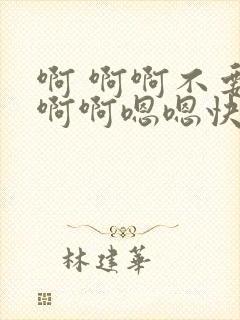 啊 啊啊不要
啊啊嗯嗯快
林建华